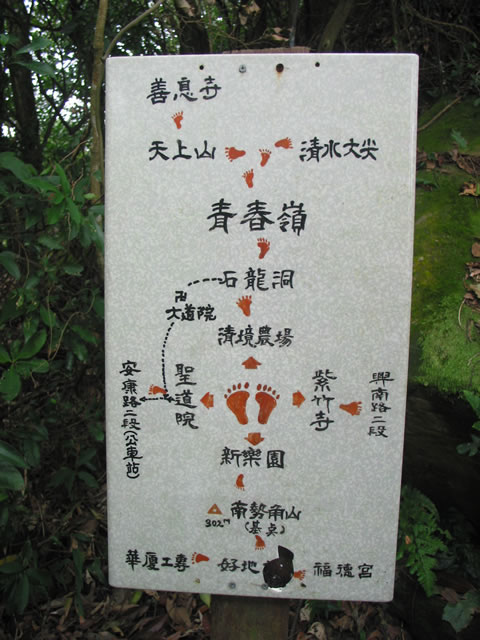 善息寺
天上山 清水大尖
青春嶺
石龍洞
卍
大道院
清境農場
安康路二段(公車站)
聖道院
紫竹寺
興南路二段
新樂園
南勢角山
302m (基点)
華廈工專 好地 福德宮